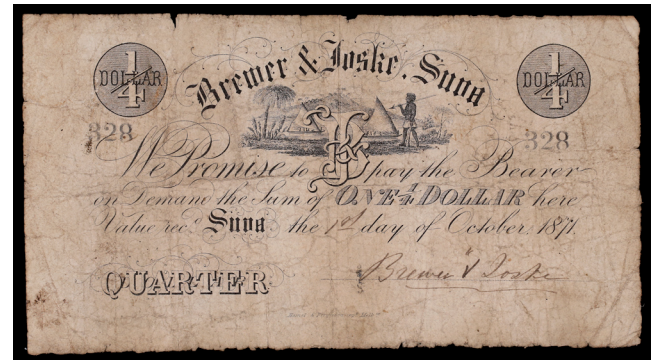 1/4 DOLLAR 1/4 DOLLAR
Brewer & Joske. Suva
328 328
We Promise to pay the Bearer
on Demand the Sum of ONE 1/4 DOLLAR here
Value rec.d Suva the 1st day of October, 1871.
QUARTER Brewer & Joske